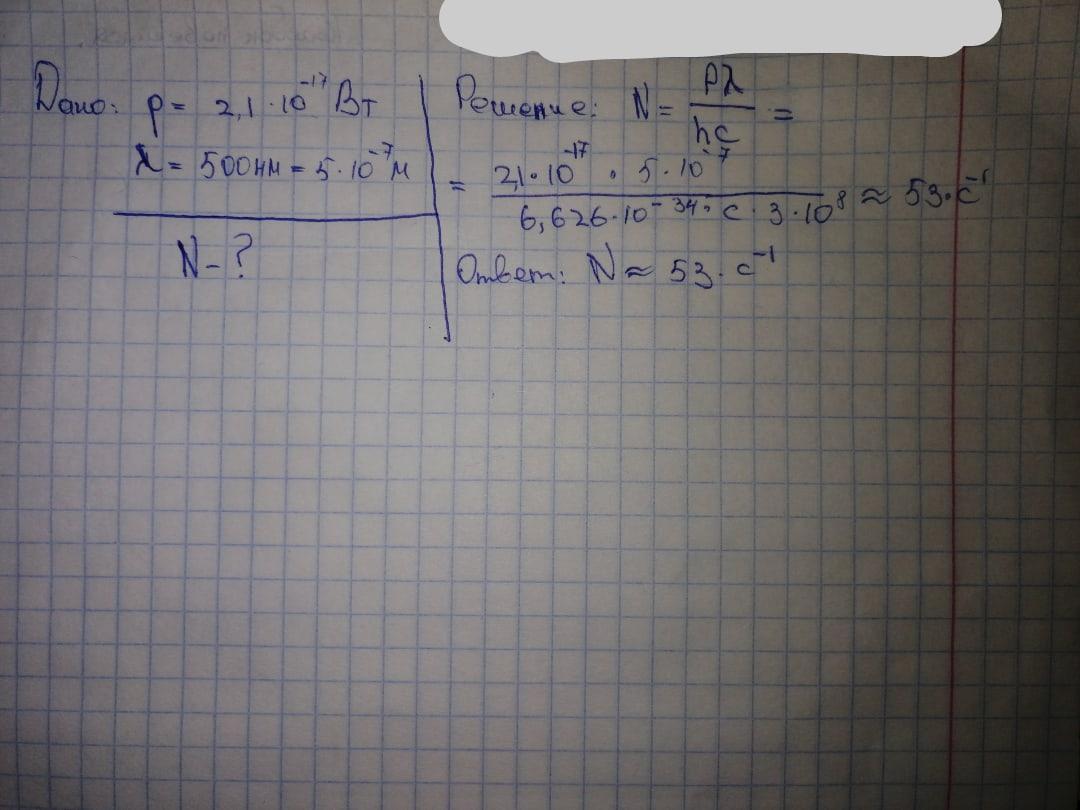 Дано: p = 2,1 · 10⁻¹⁷ Вт
λ = 500 нм = 5 · 10⁻⁷ м
N - ?
Решение: N = Pλ / hc =
= 2,1 · 10⁻¹⁷ · 5 · 10⁻⁷ / 6,626 · 10⁻³⁴ · с · 3 · 10⁸ ≈ 53 · с⁻¹
Ответ: N ≈ 53 · с⁻¹